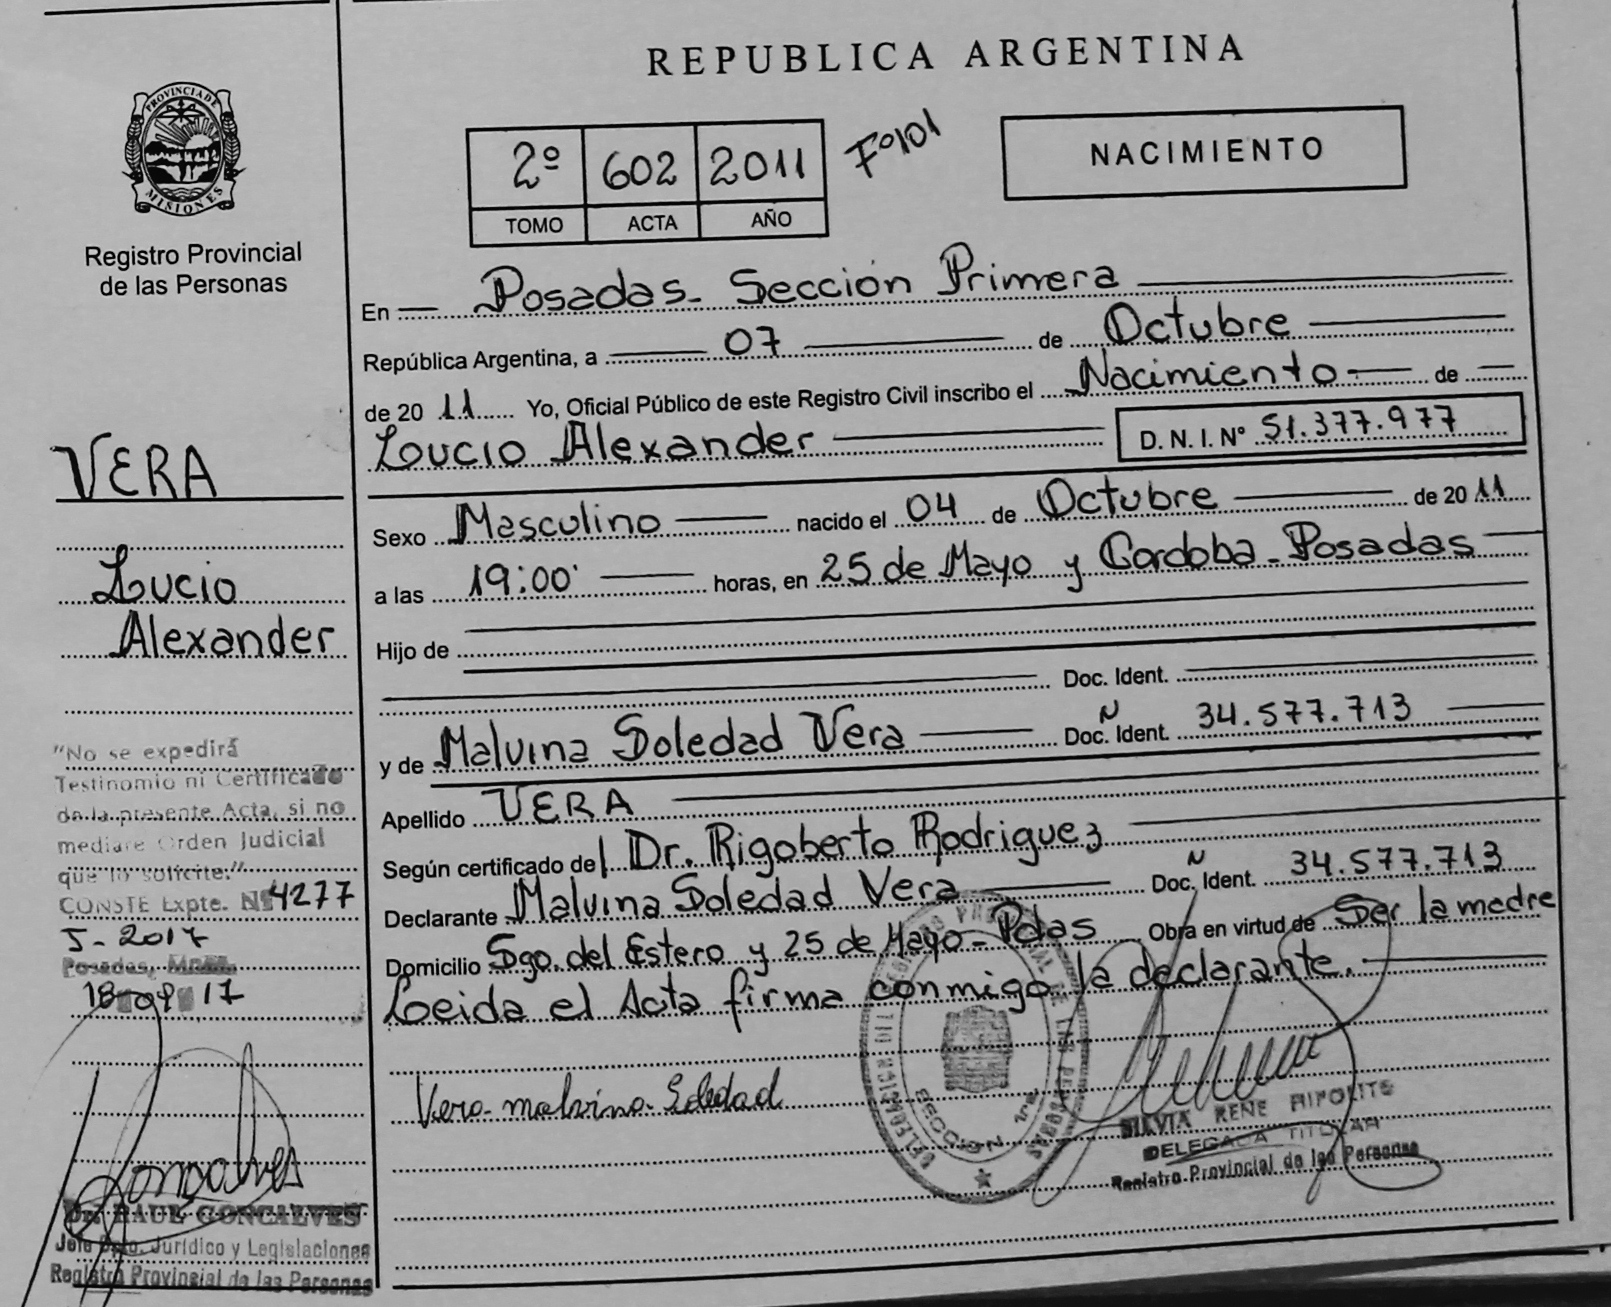 REPUBLICA ARGENTINA
PROVINCIA DE MISIONES
Registro Provincial
de las Personas
2º 602 2011 Fº101
TOMO ACTA AÑO
NACIMIENTO
En Posadas - Sección Primera
República Argentina, a 07 de Octubre
de 20 11 Yo, Oficial Público de este Registro Civil inscribo el Nacimiento de
Lucio Alexander D.N.I. Nº 51.377.977
Sexo Masculino nacido el 04 de Octubre de 20 11
a las 19:00 horas, en 25 de Mayo y Cordoba - Posadas
Hijo de
Doc. Ident.
y de Malvina Soledad Vera Doc. N Ident. 34.577.713
Apellido VERA
Según certificado del Dr. Rigoberto Rodriguez
Declarante Malvina Soledad Vera Doc. N Ident. 34.577.713
Domicilio Sgo. del Estero y 25 de Mayo - Pdas Obra en virtud de Ser la madre
Leida el Acta firma conmigo la declarante.
Vera Malvina Soledad
SECCION 1ra
SILVIA RENE HIPOLITO
DELEGADA TITULAR
Registro Provincial de las Personas
VERA
Lucio
Alexander
"No se expedirá
Testinomio ni Certificado
de la presente Acta, si no
mediare Orden Judicial
que lo solicite."
CONSTE Expte. Nº 4277
J-2017
Posadas,
18 17
Goncalves
Dr. RAUL GONCALVES
Jefe Dpto. Jurídico y Legislaciones
Registro Provincial de las Personas